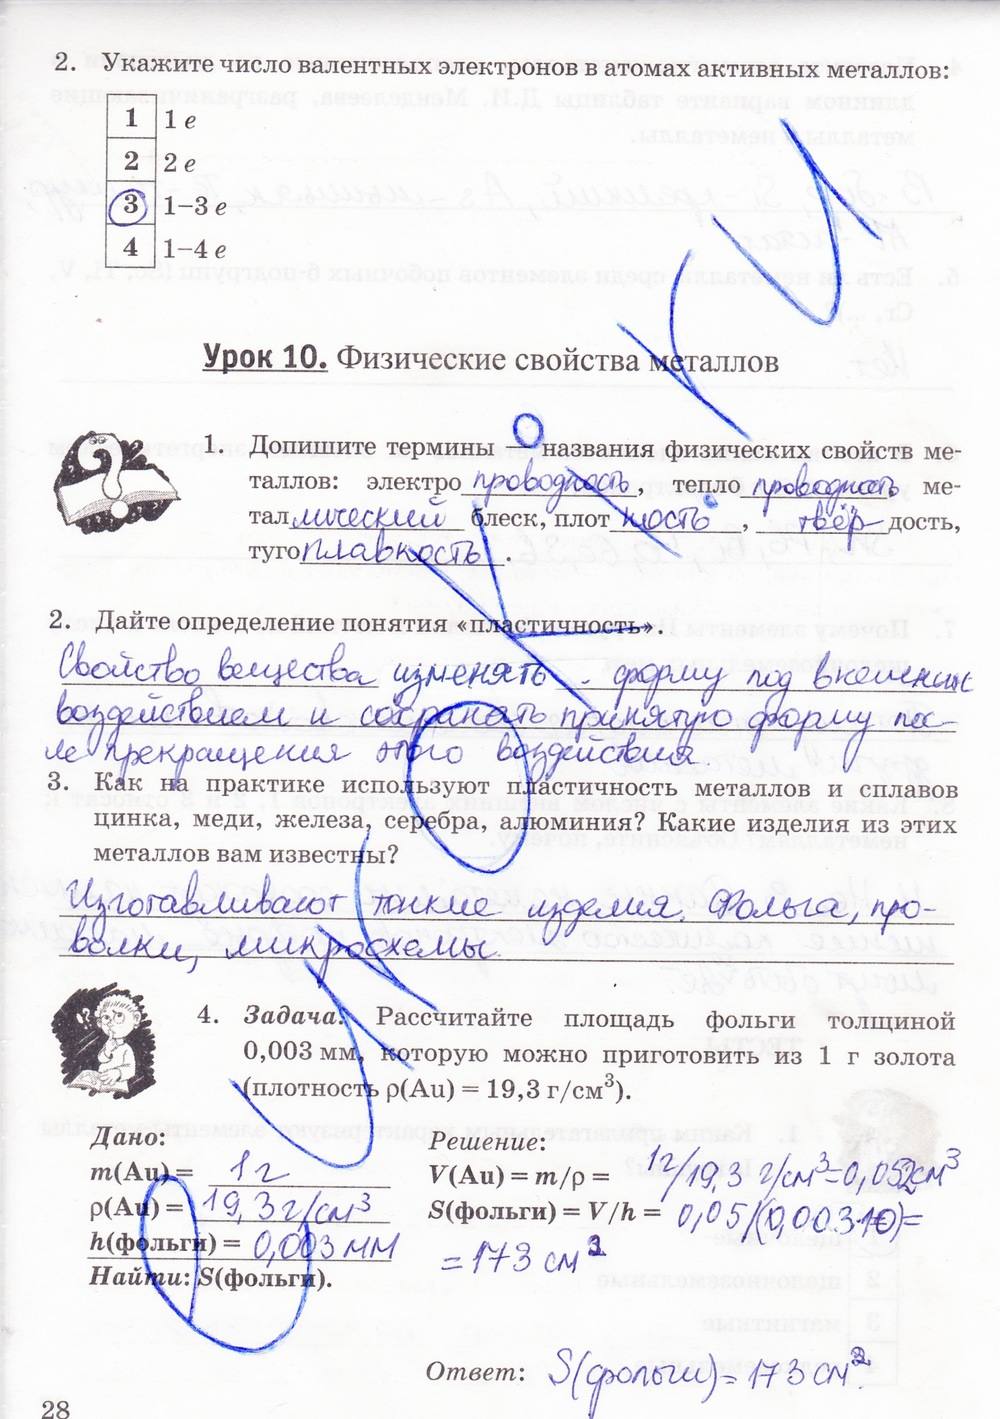 2. Укажите число валентных электронов в атомах активных металлов:
1 1 е
2 2 е
3 1–3 е
4 1–4 е
Урок 10. Физические свойства металлов
1. Допишите термины — названия физических свойств ме-
таллов: электропроводность, теплопроводность ме-
таллический блеск, плотность, твёрдость,
тугоплавкость.
2. Дайте определение понятия «пластичность».
Свойство вещества изменять форму под внешним
воздействием и сохранять принятую форму пос-
ле прекращения этого воздействия.
3. Как на практике используют пластичность металлов и сплавов
цинка, меди, железа, серебра, алюминия? Какие изделия из этих
металлов вам известны?
Изготавливают тонкие изделия. Фольга, про-
волки, микросхемы.
4. Задача. Рассчитайте площадь фольги толщиной
0,003 мм, которую можно приготовить из 1 г золота
(плотность ρ(Au) = 19,3 г/см³).
Дано:
m(Au) = 1г
ρ(Au) = 19,3г/см³
h(фольги) = 0,003 мм
Найти: S(фольги).
Решение:
V(Au) = m/ρ = 1г/19,3 г/см³=0,052см³
S(фольги) = V/h = 0,05/(0,003·10)=
= 173 см²
Ответ: S(фольги)=173 см².
28